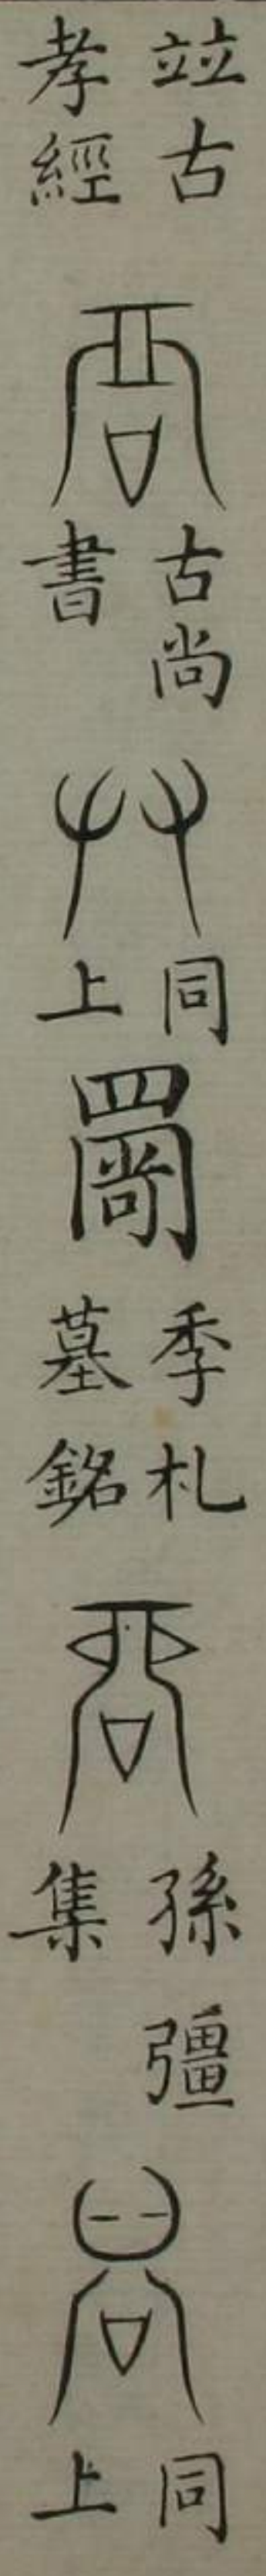 竝古
孝經
古尚
書
同
上
季札
墓銘
孫彊
集
同
上